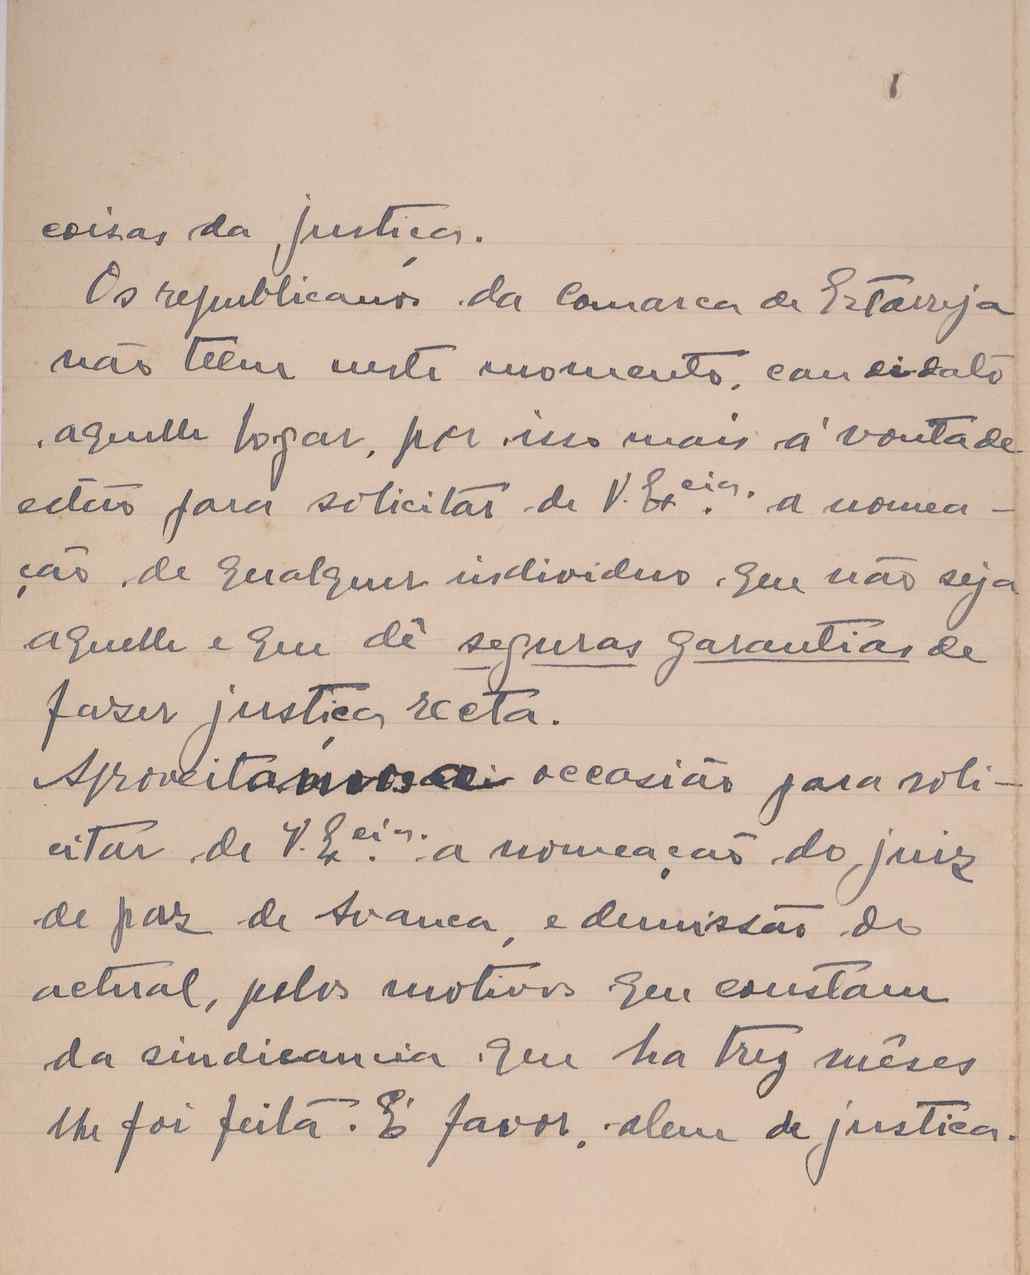 coisas da justiça.
Os republicanos da Comarca de Estarreja
não teem neste momento, candidato
aquelle logar, por isso mais á vontade
estão para solicitar de V. Ex.cia. a nomea-
ção de qualquer individuo que não seja
aquelle e que dê seguras garantias de
fazer justiça recta.
Aproveitamos a occasião para soli-
citar de V. Ex.cia. a nomeação do juiz
de paz de Avanca, e demissão do
actual, pelos motivos que constam
da sindicancia que ha trez mêses
lhe foi feita. É favor, alem de justica.